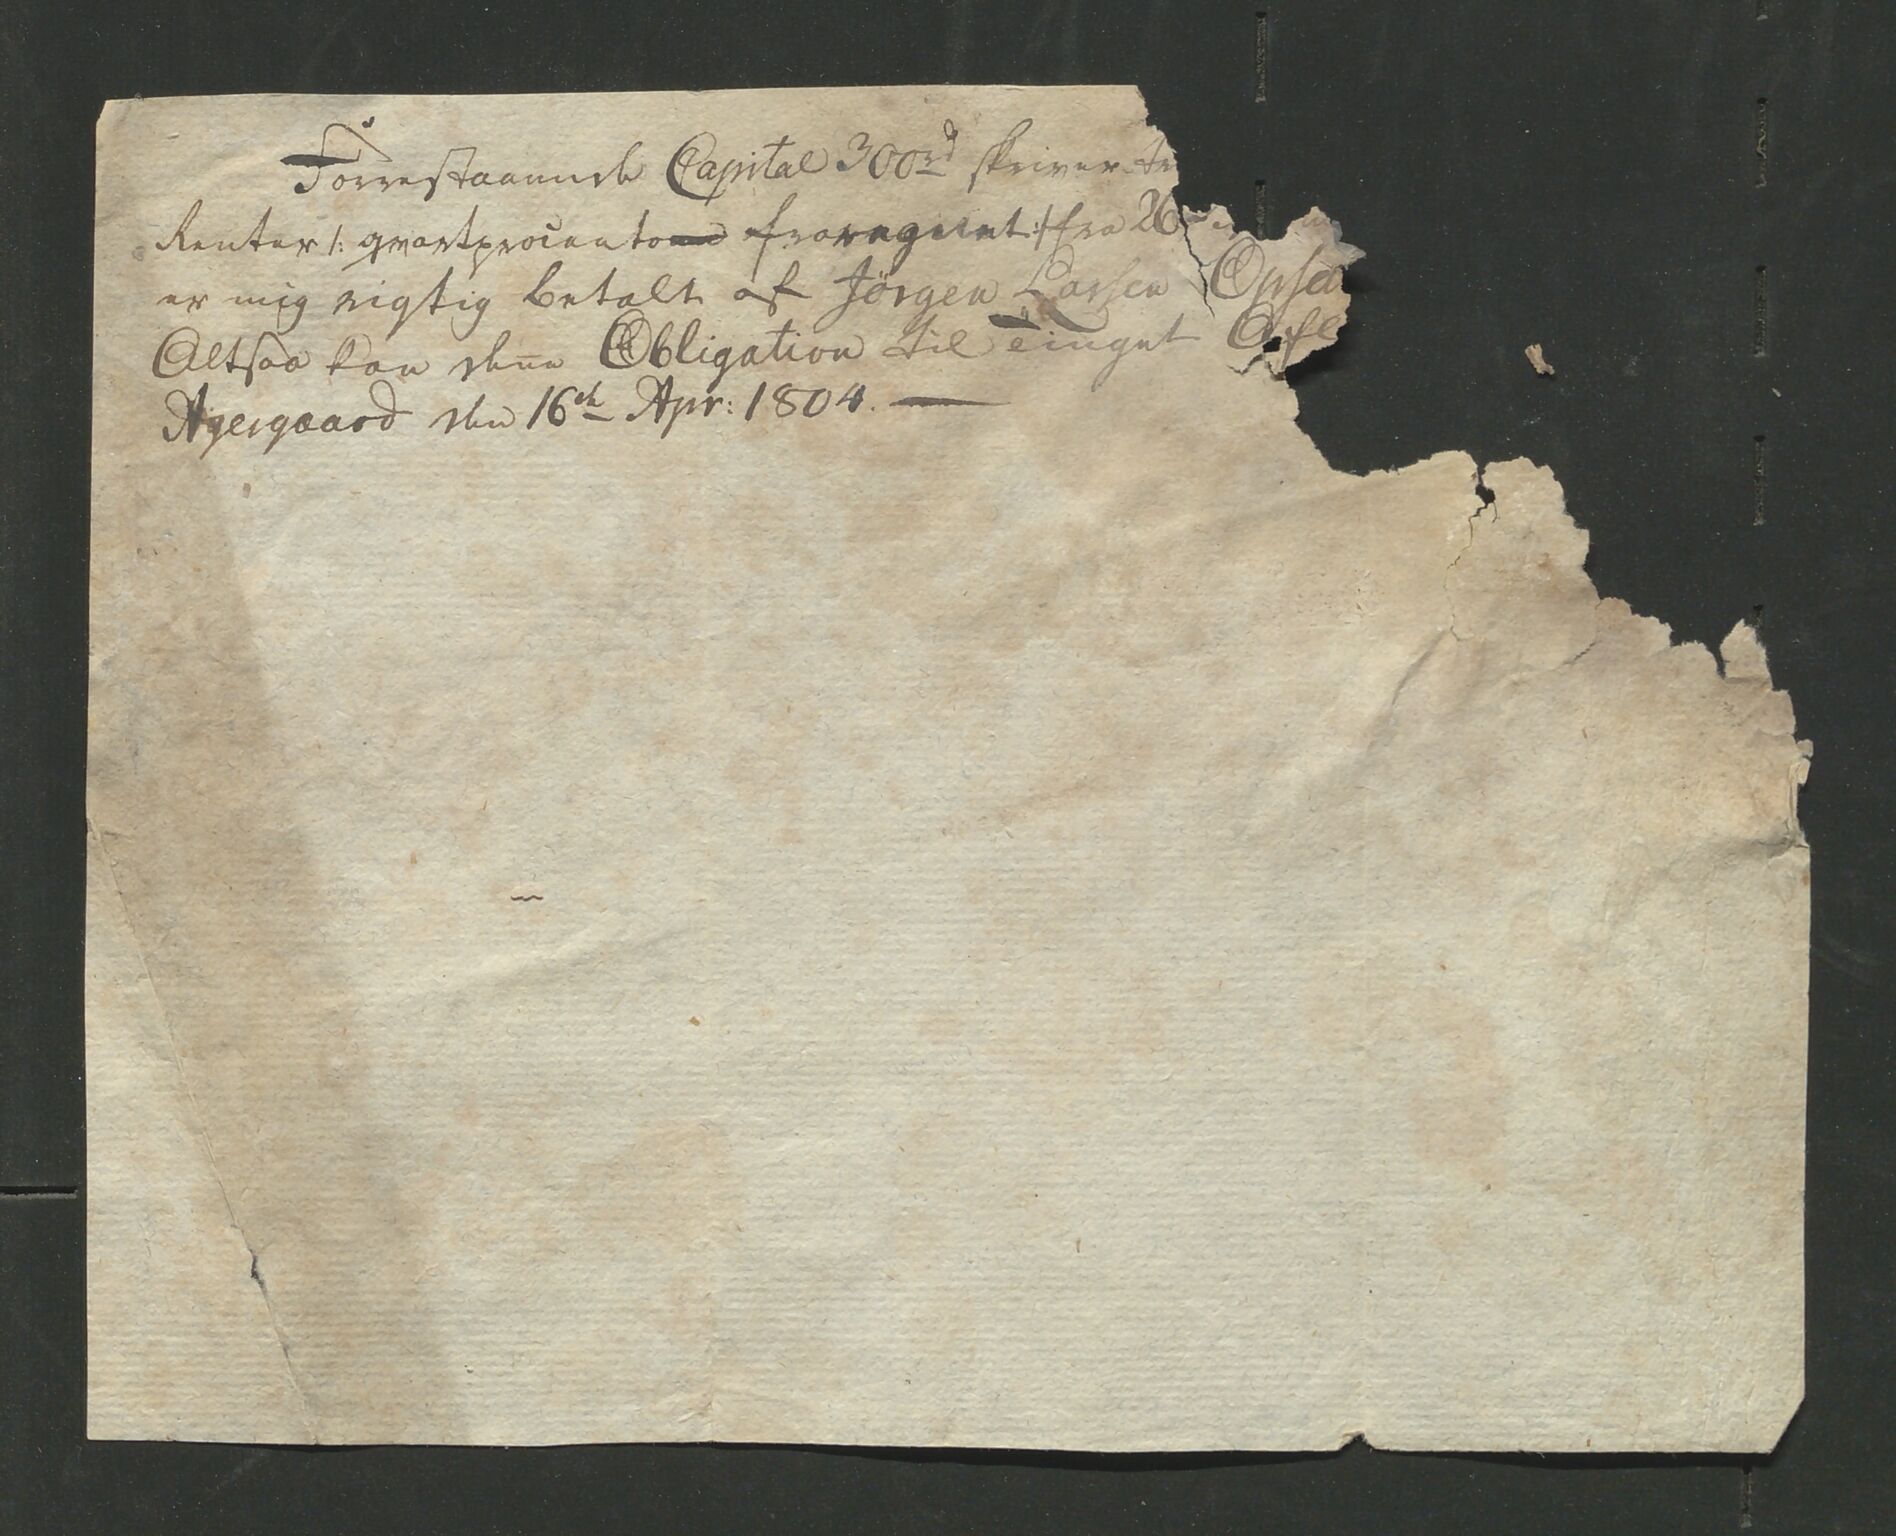 Forrestaaende Capital 300rd skriver tr
Renter /: qvartprocento fraregnet :/ fra 26
er mig rigtig betalt af Jörgen Larsen Opsa
Altsaa kan denne Obligation til Tinget Afl
Agergaard den 16de Apr: 1804.